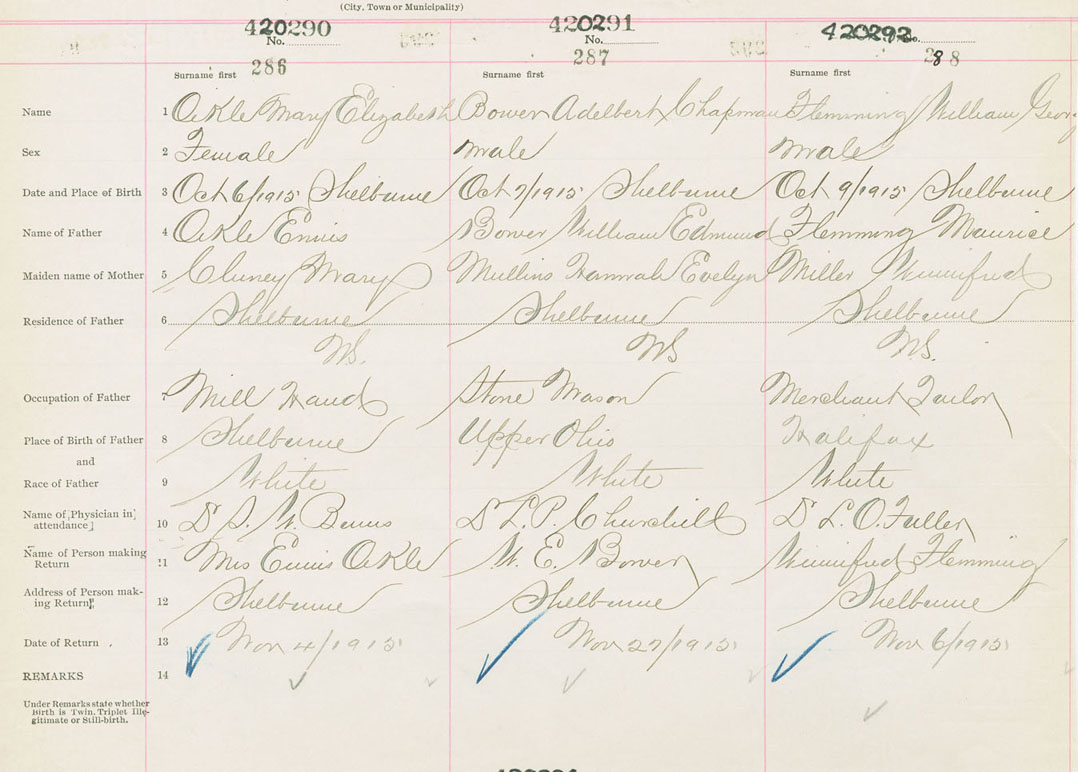 (City, Town or Municipality)
420290 420291 420292
No. No. No.
286 287 288
Surname first Surname first Surname first
Name 1 Oikle Mary Elizabeth Bower Adelbert Chapman Flemming William Georg
Sex 2 Female Male Male
Date and Place of Birth 3 Oct 6/1915 Shelburne Oct 7/1915 Shelburne Oct 9/1915 Shelburne
Name of Father 4 Oikle Ennis Bower William Edmund Flemming Maurice
Maiden name of Mother 5 Cluney Mary Mullins Hannah Evelyn Miller Winnifred
Residence of Father 6 Shelburne Shelburne Shelburne
NS. NS NS.
Occupation of Father 7 Mill Hand Stone Mason Merchant Tailor
Place of Birth of Father 8 Shelburne Upper Ohio Halifax
and
Race of Father 9 White White White
Name of Physician in
attendance 10 Dr Dr L. P. Churchill Dr L. O. Fuller
Name of Person making
Return 11 Mrs Ennis Oikle W. E. Bower Winnifred Flemming
Address of Person mak-
ing Return 12 Shelburne Shelburne Shelburne
Date of Return 13 Nov 4/1915 Nov 27/1915 Nov 6/1915
REMARKS 14
Under Remarks state whether
Birth is Twin, Triplet Ille-
gitimate or Still-birth.